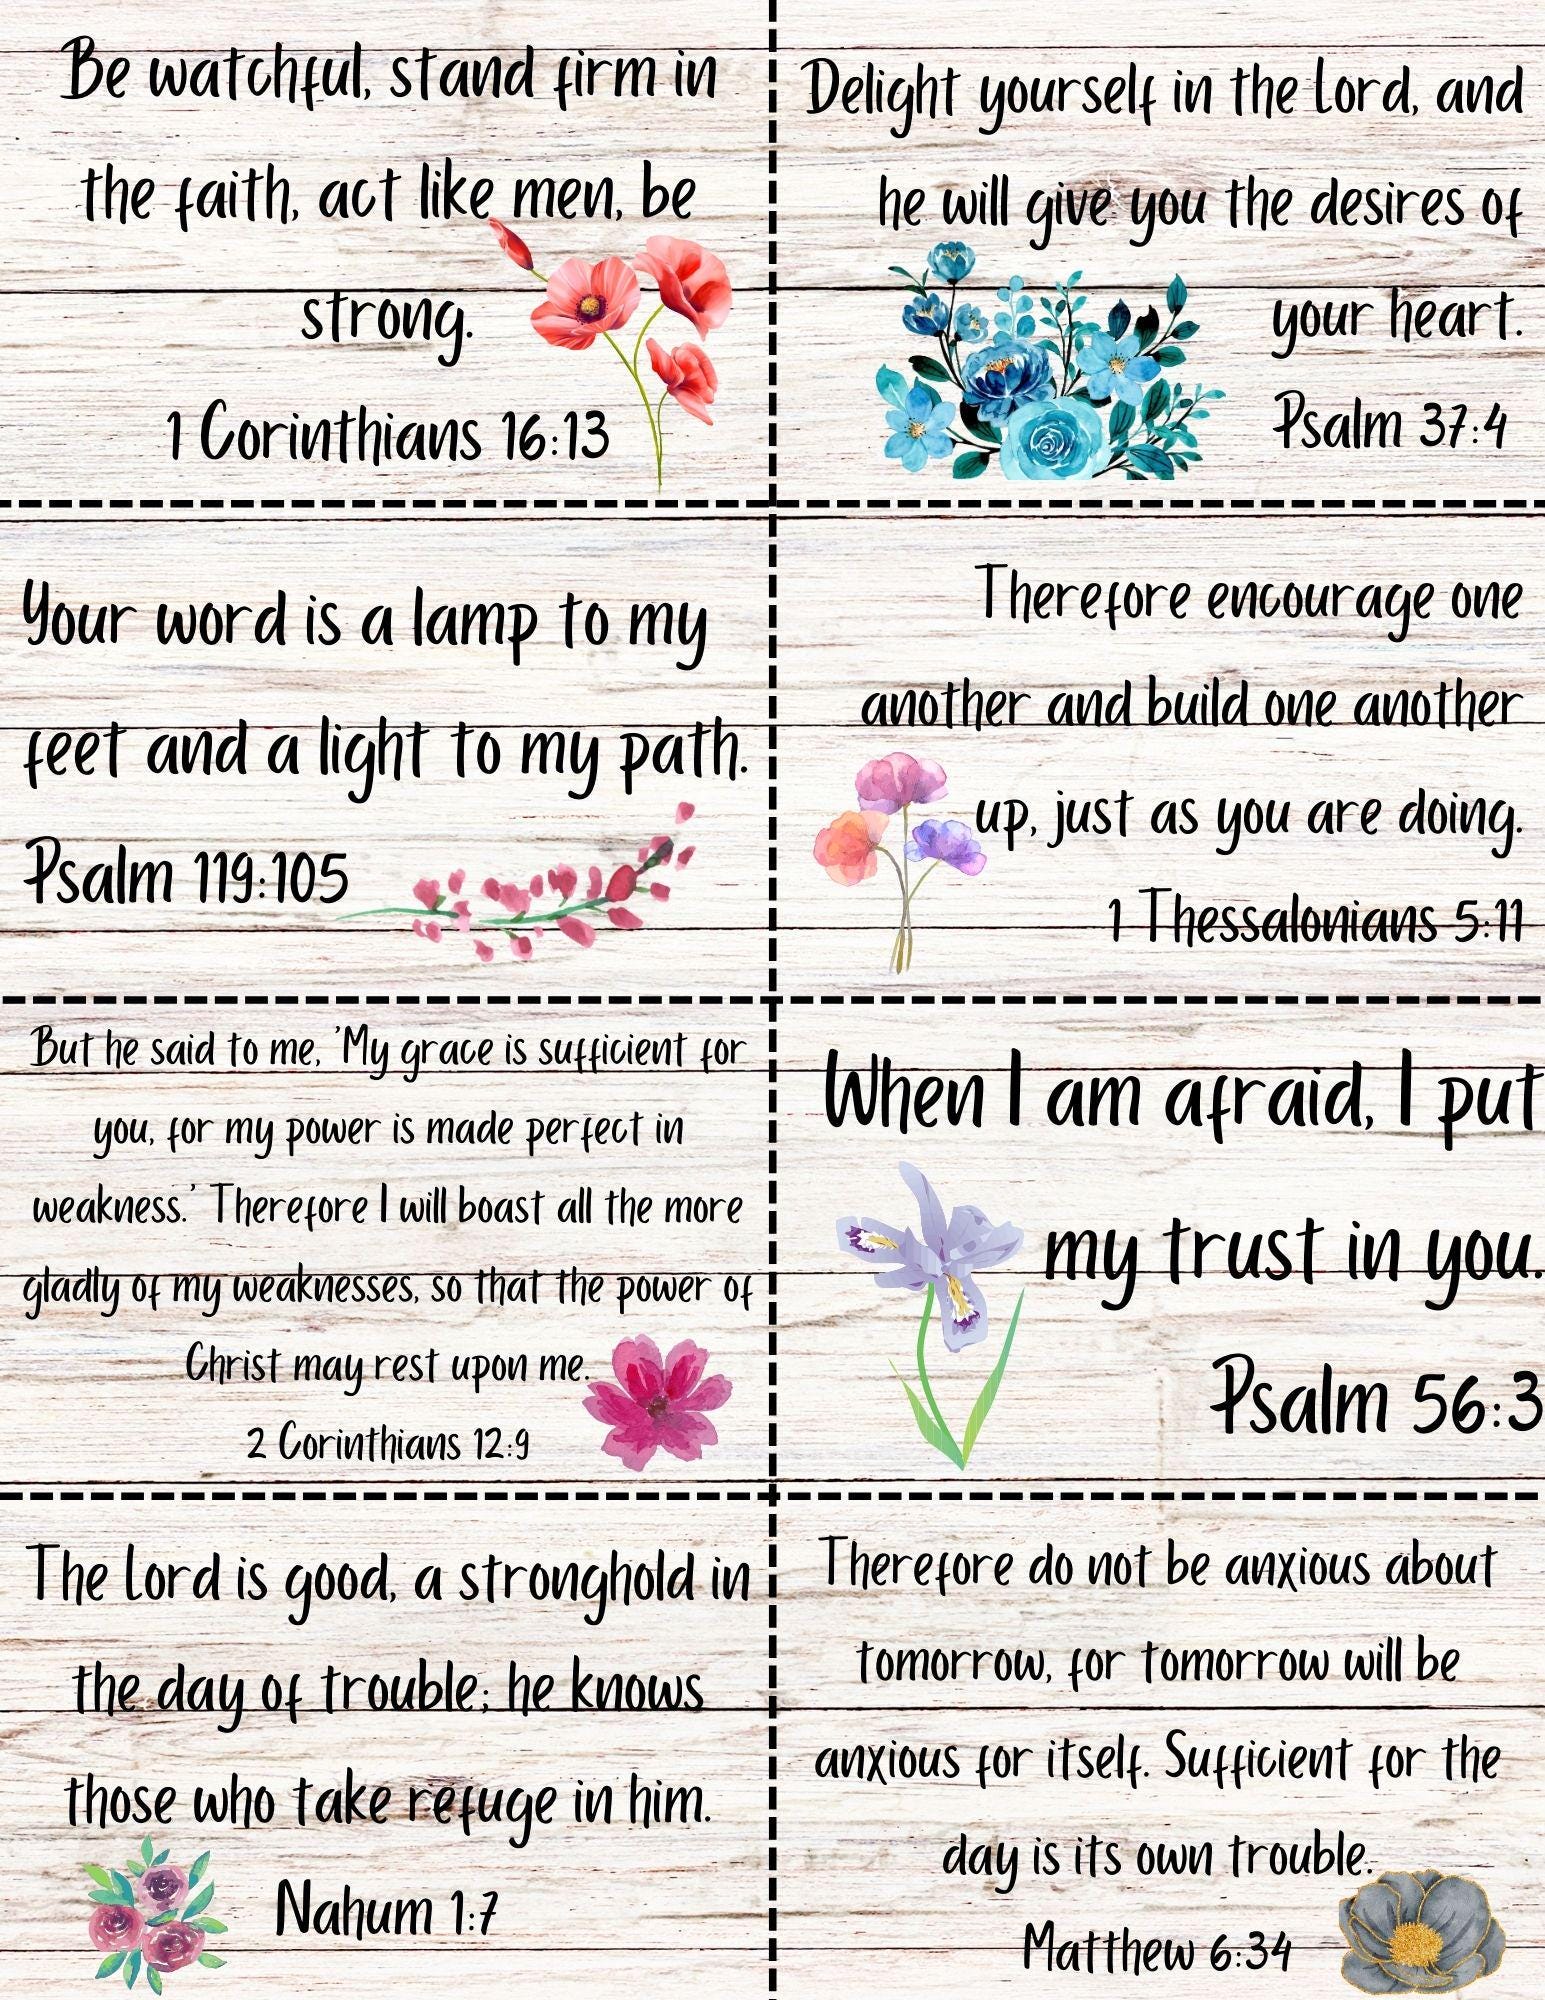 Be watchful, stand firm in
the faith, act like men, be
strong.
1 Corinthians 16:13
Delight yourself in the Lord, and
he will give you the desires of
your heart.
Psalm 37:4
Your word is a lamp to my
feet and a light to my path.
Psalm 119:105
Therefore encourage one
another and build one another
up, just as you are doing.
1 Thessalonians 5:11
But he said to me, 'My grace is sufficient for
you, for my power is made perfect in
weakness.' Therefore I will boast all the more
gladly of my weaknesses, so that the power of
Christ may rest upon me.
2 Corinthians 12:9
When I am afraid, I put
my trust in you.
Psalm 56:3
The Lord is good, a stronghold in
the day of trouble; he knows
those who take refuge in him.
Nahum 1:7
Therefore do not be anxious about
tomorrow, for tomorrow will be
anxious for itself. Sufficient for the
day is its own trouble.
Matthew 6:34